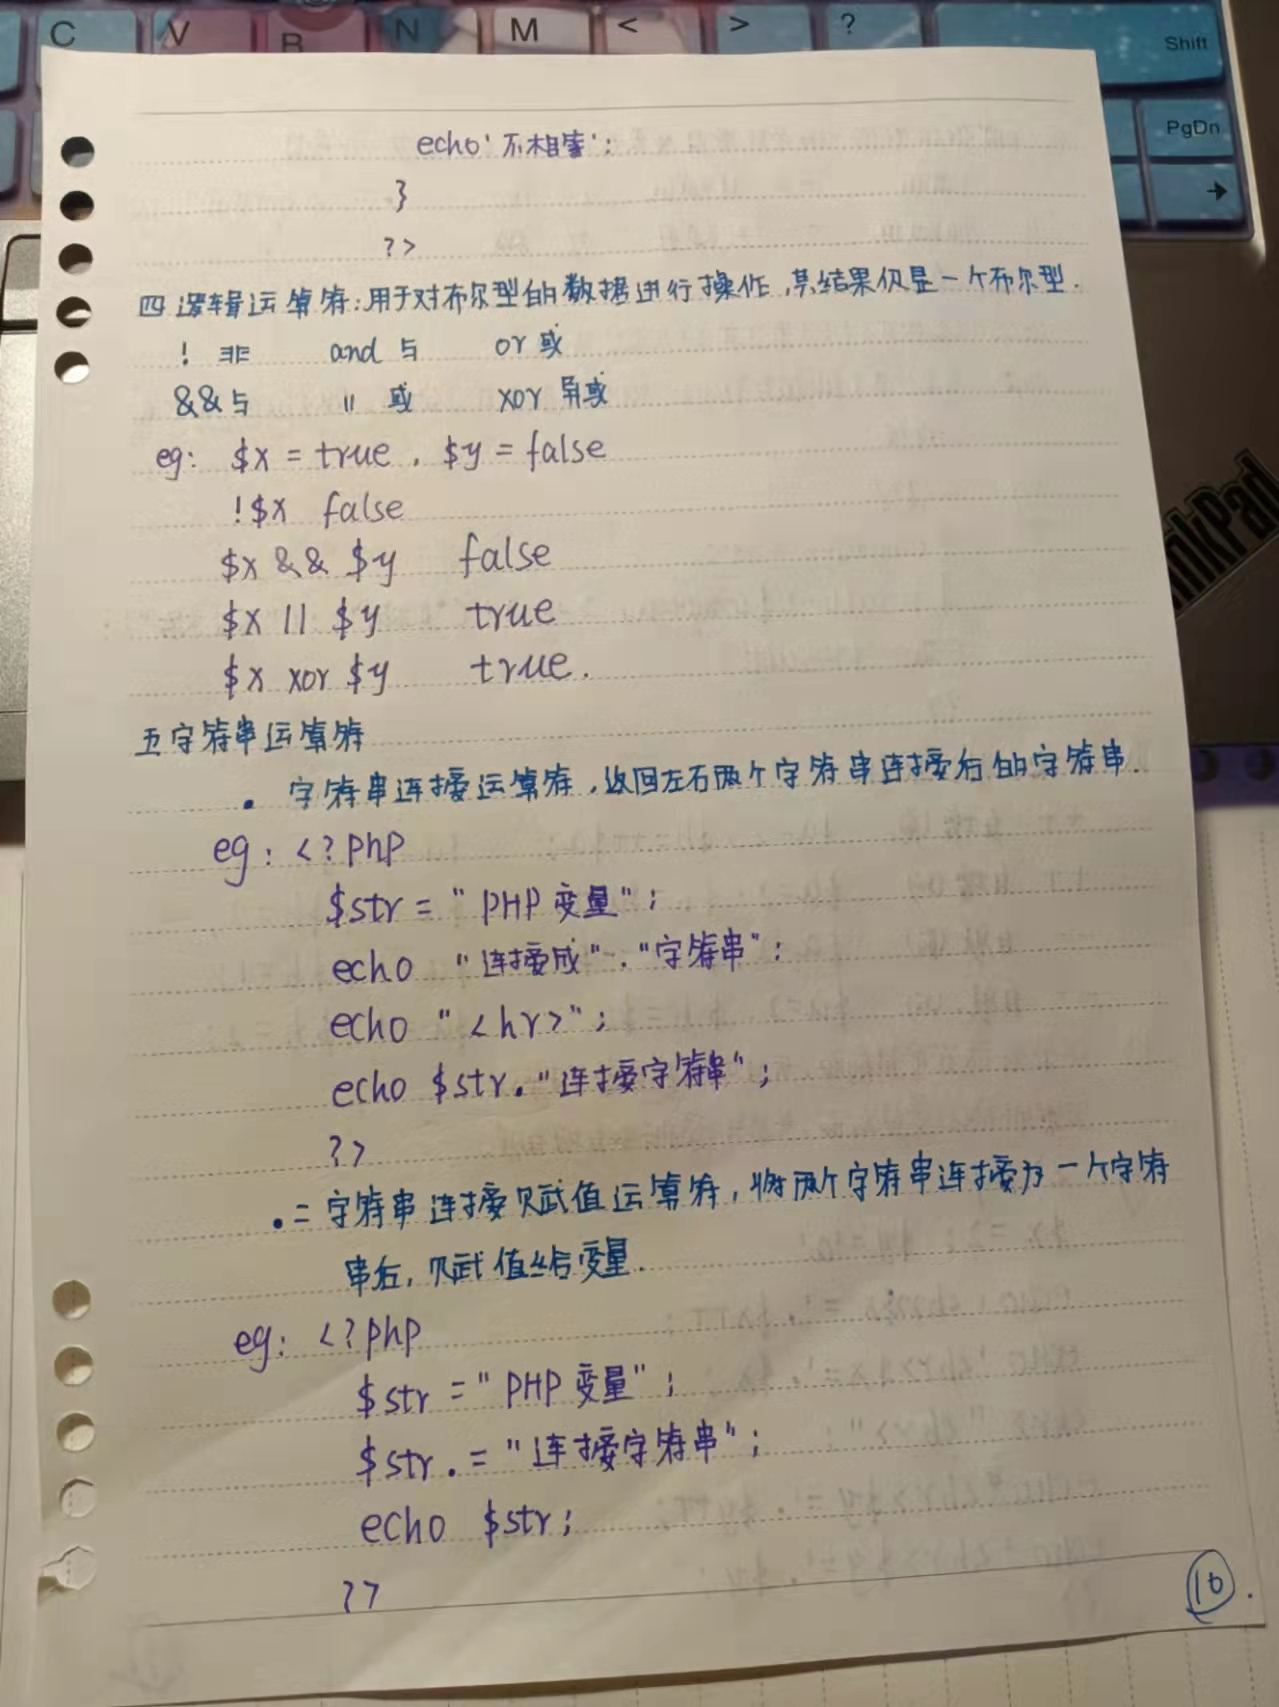 C V B N M < > ? Shift
PgDn
→
echo'不相等';
}
?>
四 逻辑运算符:用于对布尔型的数据进行操作,其结果仍是一个布尔型.
! 非 and 与 or 或
&&与 || 或 xor 异或
eg: $x = true , $y = false
!$x false
$x && $y false
$x || $y true
$x xor $y true.
五字符串运算符
. 字符串连接运算符,返回左右两个字符串连接后的字符串.
eg: <?php
$str = "PHP变量";
echo "连接成"."字符串";
echo "<hr>";
echo $str."连接字符串";
?>
.= 字符串连接赋值运算符,将两个字符串连接为一个字符
串后,赋值给变量.
eg: <?php
$str ="PHP变量";
$str .= "连接字符串";
echo $str;
?>
10
inkPad